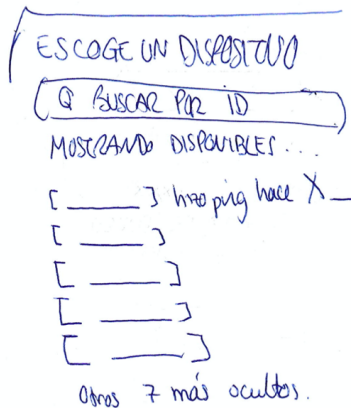 ESCOGE UN DISPOSITIVO
BUSCAR POR ID
MOSTRANDO DISPONIBLES...
[ ______ ] hizo ping hace X _
[ _____ ]
[ _____ ]
[ _____ ]
[ _____ ]
Otros 7 más ocultos.